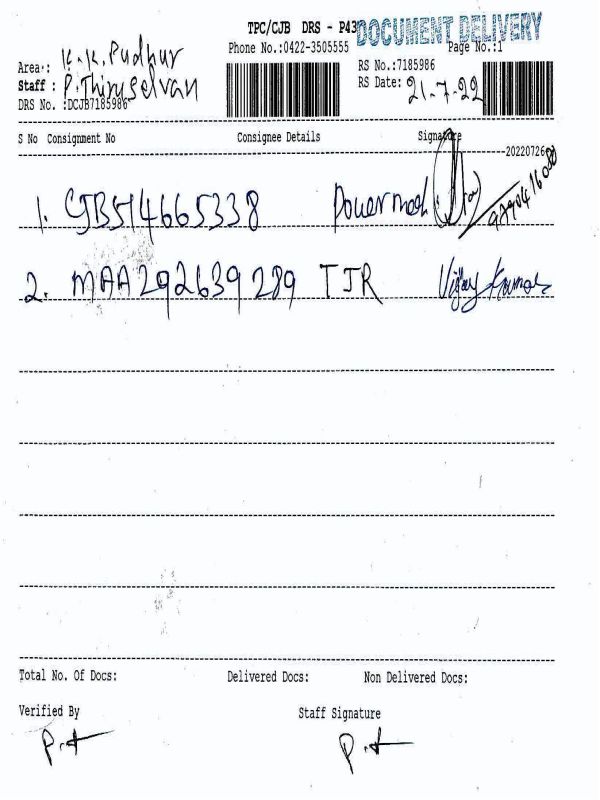 TPC/CJB DRS - P43
DOCUMENT DELIVERY
Phone No.:0422-3505555
Page No.:1
Area : K.K. Pudhur
RS No.:7185986
Staff : P. Thiruselvan
RS Date: 21-7-22
DRS No. :DCJB7185986
S No Consignment No Consignee Details Signature
20220726
1. CJB514665338 Powermech
2. MAA292639289 TJR Vijay Kumar
Total No. Of Docs: Delivered Docs: Non Delivered Docs:
Verified By Staff Signature
P.t P.t